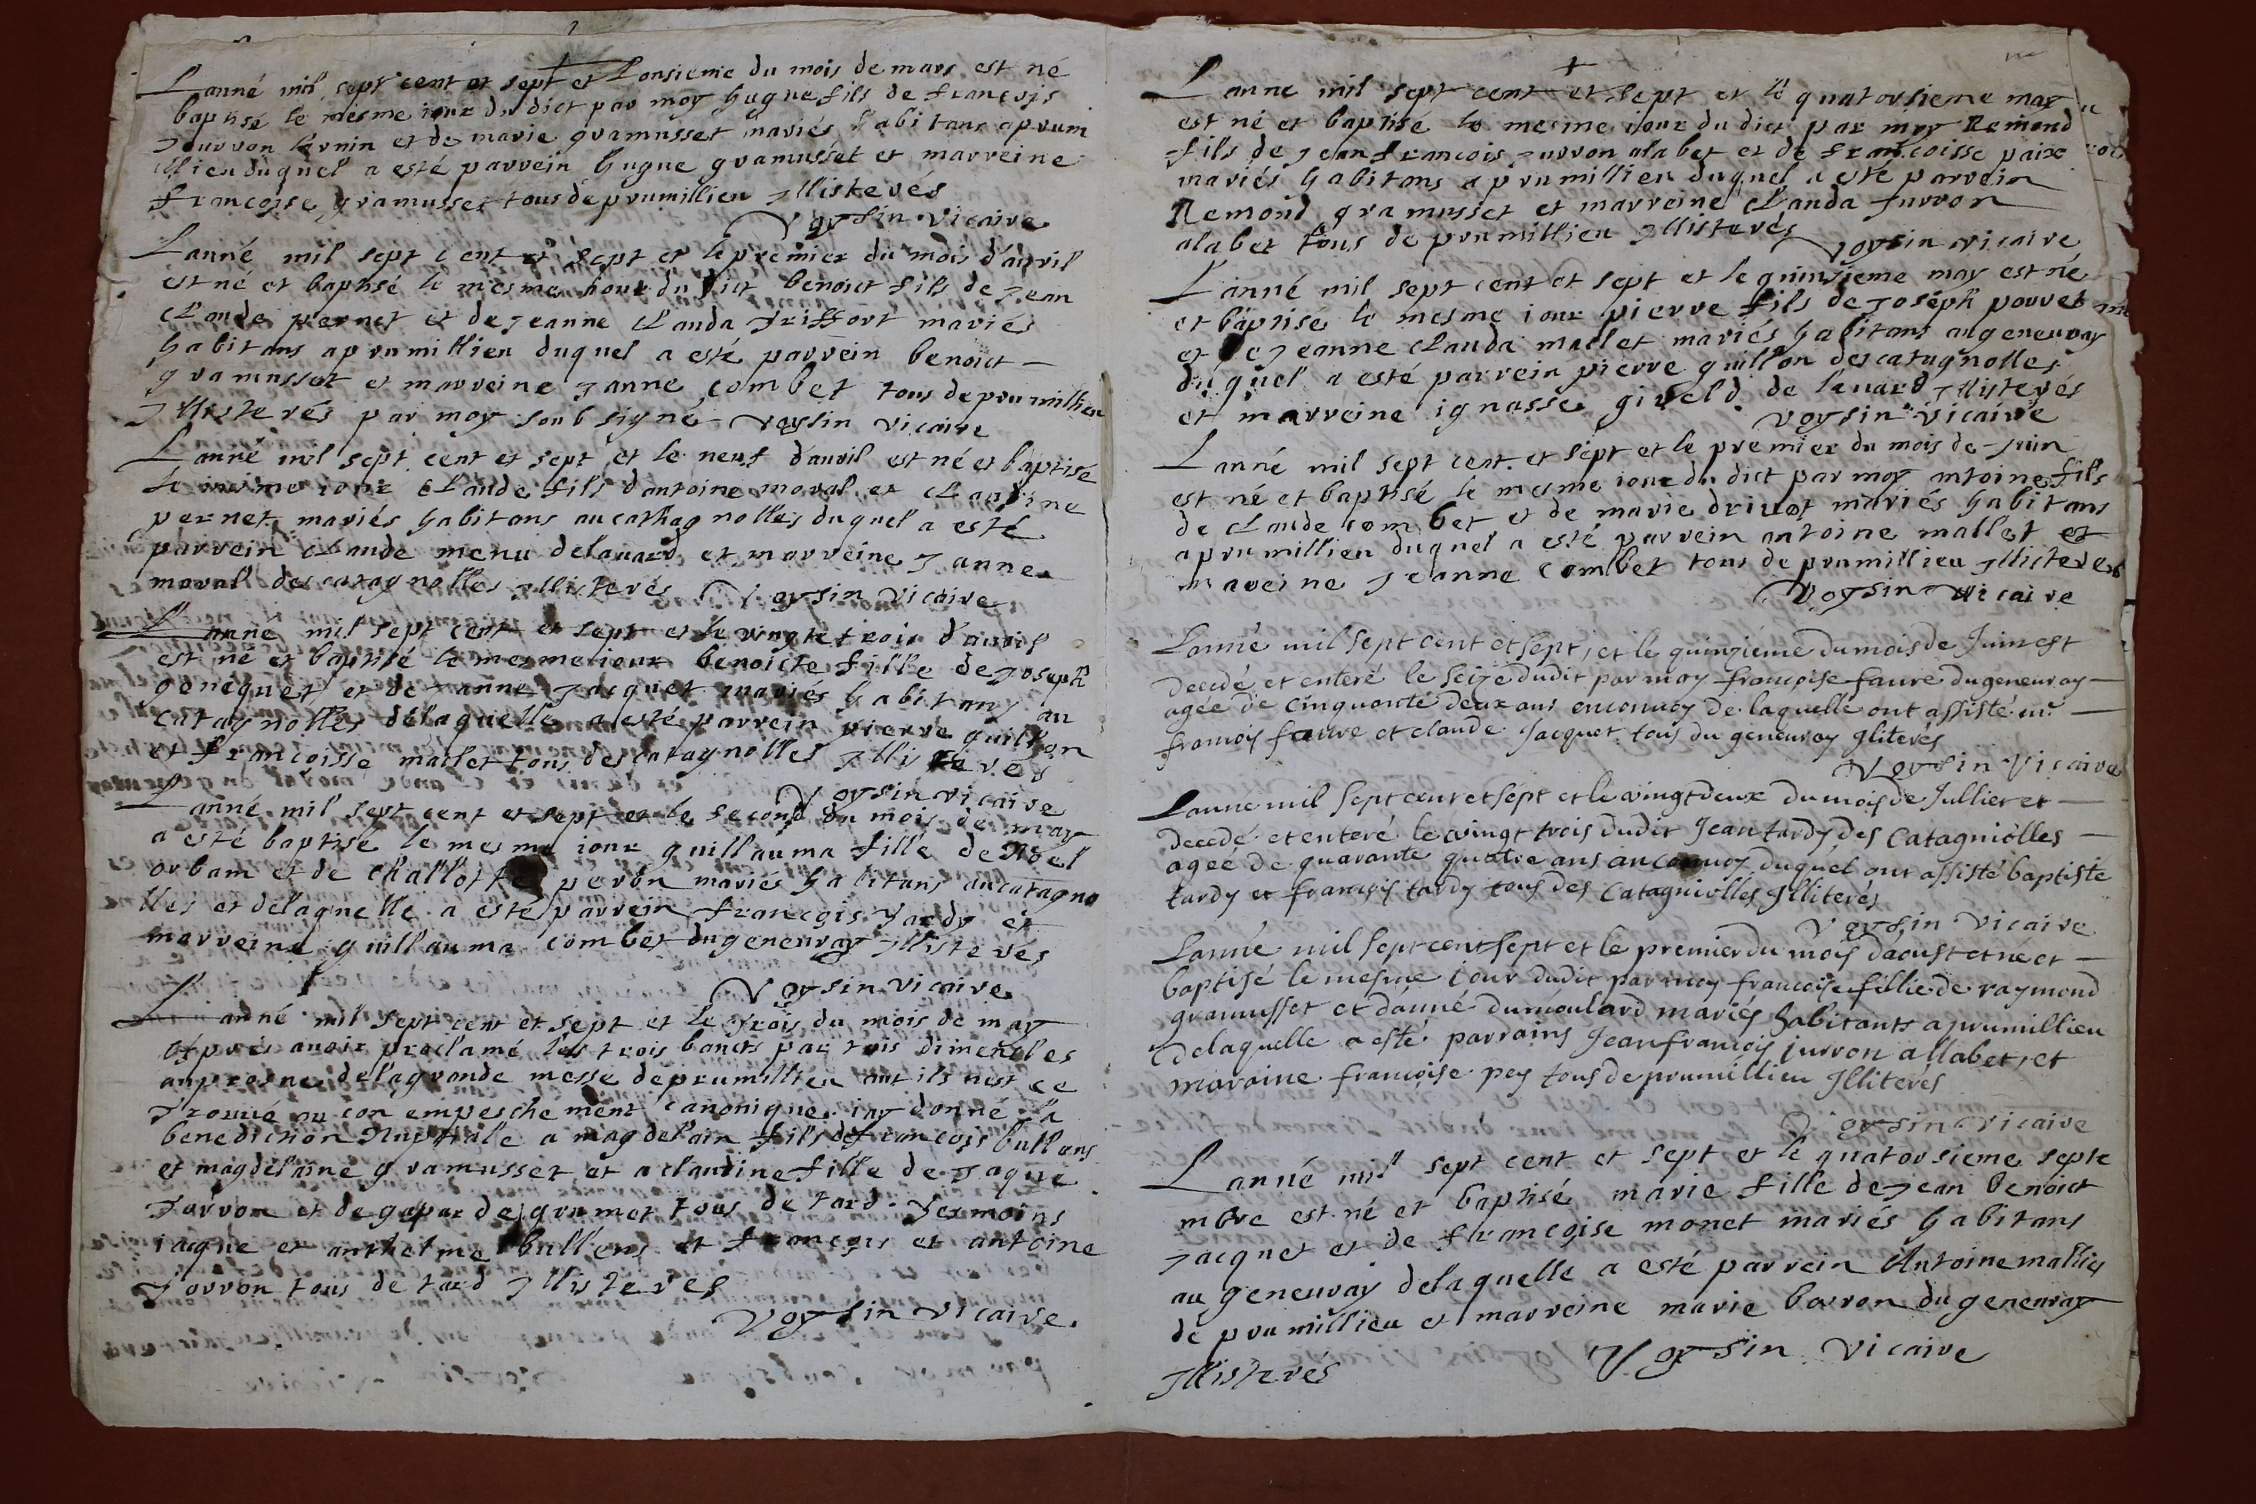 Lanné mil sept cent et sept et Lonsieme du mois de mars est né
baptisé le mesme iour du dict par moy hugue fils de francois
Jourron et de marie gramusset mariés habitans a prum
illieu duquel a esté parrein hugue gramusset et marreine
francoise gramusset tous de prumillieu Illisterés
Voysin vicaire
Lanné mil sept cent et sept et le premier du mois d'auril
est né et baptisé le mesme hour du dict benoict fils de Jean
Claude pernet et de Jeanne Clauda Triffort mariés
habitans a prumillieu duquel a esté parrein benoict
gramusset et marreine Janne combet tous de prumillieu
Illisterés par moy soubsigné Voysin vicaire
Lanné mil sept cent et sept et le neuf d'auril est né et baptisé
le mesme iour Claude fils d'antoine moral et Claudine
pernet mariés habitans au cathagnolles duquel a esté
parrein Claude menu delauard et marreine Janne
moral des catagnolles Illisterés Voysin vicaire
Lanne mil sept cent et sept et le vingte trois d'auril
est né et baptisé le mesme iour benoicte fille de Joseph
genequet et de Janne Jacquet mariés habitans au
catagnolles delaquelle a esté parrein pierre guillon
et francoisse mallet tous des catagnolles Illisterés
Voysin vicaire
Lanné mil sept cent et sept et le second du mois de may
a esté baptisé le mesme iour guillauma fille de Noel
orbam et de Challotte peron mariés habitans au catagno
lles et delaquelle a esté parrein françois Tardy et
marreine guillauma combet du geneuray Illisterés
Voysin vicaire
Lanné mil sept cent et sept et le trois du mois de may
Apres auoir proclamé les trois bancts par trois dimenches
au prosne de la grande messe de prumillieu ou ils nest ce
trouué aucon empeschement canonique iay donné la
benediction Nuptiale a magdelain fils de francois bullens
et magdelaine gramusset et a claudine fille de Jaque
Jurron et de gaspar de grumet tous de tard. Tesmoins
iacque et anthelme bullens et françois et antoine
Jorron tous de tard Illisteres
Voysin vicaire
Lanne mil sept cent et sept et le quatorsieme may
est né et baptisé le mesme iour du dict par moy Remond
fils de Jean francois Jurron alabet et de francoisse paix
mariés habitans a prumillieu duquel a esté parrein
Remond gramusset et marreine Clauda Jurron
alabet tous de prumillieu Illisterés
Voysin vicaire
Lanné mil sept cent et sept et le quinsieme may est né
et baptisé le mesme iour pierre fils de Joseph porret
et de Jeanne Clauda mallet mariés habitans au geneuray
duquel a esté parrein pierre guillon des catagnolles
et marreine ignasse gireld de lauard Illisterés
Voysin Vicaire
Lanné mil sept cent et sept et le premier du mois de Juin
est né et baptisé le mesme iour du dict par moy antoine fils
de Claude combet et de marie driuot mariés habitans
a prumillieu duquel a esté parrein antoine mallet et
mareine Jeanne Combet tous de prumillieu Illisteres
Voysin vicaire
Lanné mil sept cent et sept, et le quinziéme du mois de Juin est
decedé et enteré le seize dudit par moy françoise faure du geneuray
agée de cinquante deux ans enconuoy de laquelle ont assisté mr
françois faure et claude Jacquet tous du geneuray Iliterés
Voysin Vicaire
Lanne mil sept cent et sept et le vingtdeux du mois de Jullier et
decedé et enteré le vingt trois dudit Jean tardy des Catagniolles
agee de quarante quatre ans au conuoy duquel ont assisté baptiste
tardy et françois tardy tous des Catagniolles Illiterés
Voysin vicaire
Lanné mil sept cent sept et le premier du mois daoust et né et
baptisé le mesme iour dudit par moy francoise fillie de raymond
gramusset et danné dumoulard mariés habitants a prumillieu
delaquelle a esté parrains Jean françois jurron allabet, et
maraine francoise pey tous de prumillieu Illiterés
Voysin vicaire
Lanné mil sept cent et sept et le quatorsieme septe
mbre est né et baptisé marie fille de Jean benoict
Jacquet et de françoise monet mariés habitans
au geneuray delaquelle a esté parrein Antoine mallies
de prumillieu et marreine marie borron du geneuray
Illisterés
Voysin vicaire